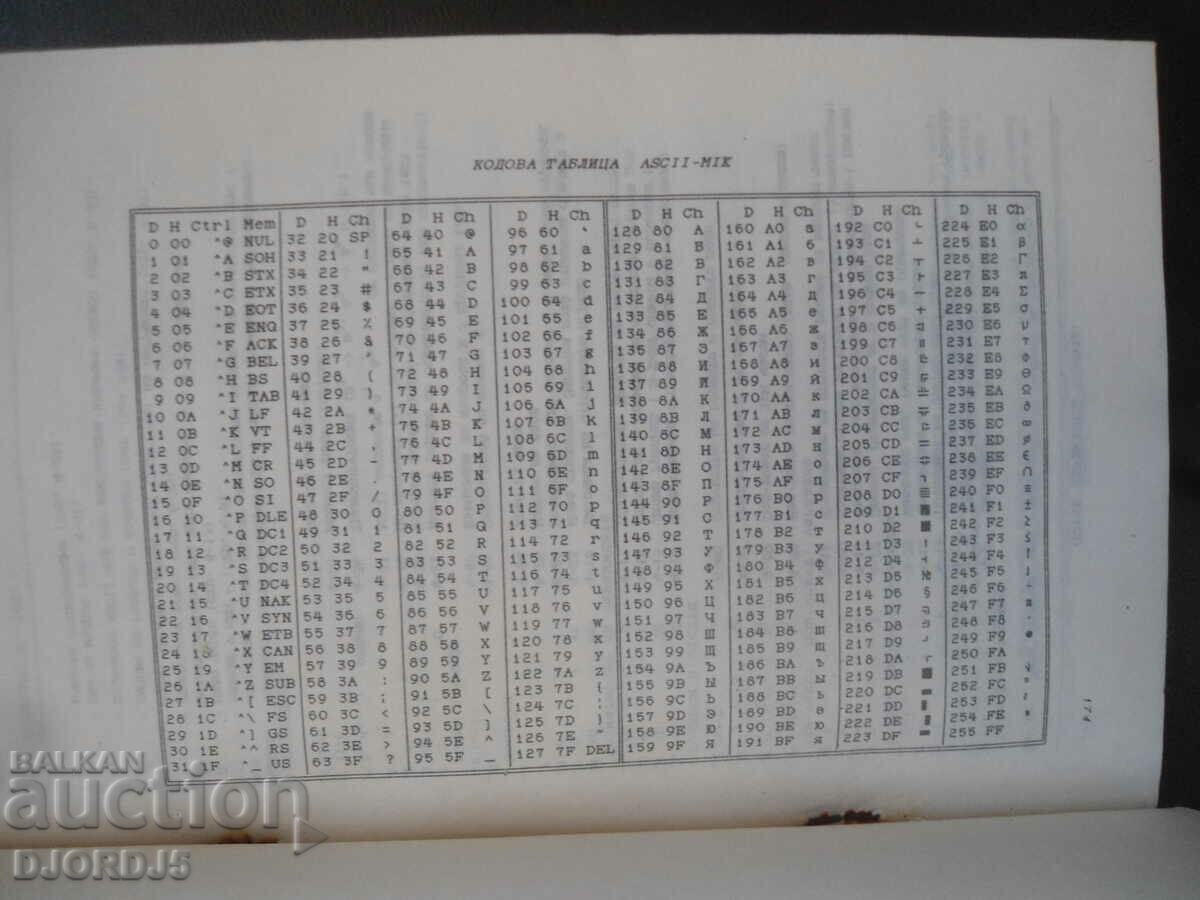 КОДОВА ТАБЛИЦА ASCII-МIК
D H Ctrl Mem D H Ch D H Ch D H Ch D H Ch D H Ch D H Ch D H Ch
0 00 ^@ NUL 32 20 SP 64 40 @ 96 60 ` 128 80 А 160 A0 а 192 C0 └ 224 E0 α
1 01 ^A SOH 33 21 ! 65 41 A 97 61 a 129 81 Б 161 A1 б 193 C1 ┴ 225 E1 β
2 02 ^B STX 34 22 " 66 42 B 98 62 b 130 82 В 162 A2 в 194 C2 ┬ 226 E2 Γ
3 03 ^C ETX 35 23 # 67 43 C 99 63 c 131 83 Г 163 A3 г 195 C3 ├ 227 E3 π
4 04 ^D EOT 36 24 $ 68 44 D 100 64 d 132 84 Д 164 A4 д 196 C4 ─ 228 E4 Σ
5 05 ^E ENQ 37 25 % 69 45 E 101 65 e 133 85 Е 165 A5 е 197 C5 ┼ 229 E5 σ
6 06 ^F ACK 38 26 & 70 46 F 102 66 f 134 86 Ж 166 A6 ж 198 C6 ╣ 230 E6 μ
7 07 ^G BEL 39 27 ' 71 47 G 103 67 g 135 87 З 167 A7 з 199 C7 ║ 231 E7 τ
8 08 ^H BS 40 28 ( 72 48 H 104 68 h 136 88 И 168 A8 и 200 C8 ╚ 232 E8 Φ
9 09 ^I TAB 41 29 ) 73 49 I 105 69 i 137 89 Й 169 A9 й 201 C9 ╔ 233 E9 Θ
10 0A ^J LF 42 2A * 74 4A J 106 6A j 138 8A К 170 AA к 202 CA ╩ 234 EA Ω
11 0B ^K VT 43 2B + 75 4B K 107 6B k 139 8B Л 171 AB л 203 CB ╦ 235 EB δ
12 0C ^L FF 44 2C , 76 4C L 108 6C l 140 8C М 172 AC м 204 CC ╠ 236 EC ∞
13 0D ^M CR 45 2D - 77 4D M 109 6D m 141 8D Н 173 AD н 205 CD ═ 237 ED ø
14 0E ^N SO 46 2E . 78 4E N 110 6E n 142 8E О 174 AE о 206 CE ╬ 238 EE ε
15 0F ^O SI 47 2F / 79 4F O 111 6F o 143 8F П 175 AF п 207 CF ┐ 239 EF ∩
16 10 ^P DLE 48 30 0 80 50 P 112 70 p 144 90 Р 176 B0 р 208 D0 ░ 240 F0 ≡
17 11 ^Q DC1 49 31 1 81 51 Q 113 71 q 145 91 С 177 B1 с 209 D1 ▒ 241 F1 ±
18 12 ^R DC2 50 32 2 82 52 R 114 72 r 146 92 Т 178 B2 т 210 D2 ▓ 242 F2 ≥
19 13 ^S DC3 51 33 3 83 53 S 115 73 s 147 93 У 179 B3 у 211 D3 │ 243 F3 ≤
20 14 ^T DC4 52 34 4 84 54 T 116 74 t 148 94 Ф 180 B4 ф 212 D4 ┤ 244 F4 ⌠
21 15 ^U NAK 53 35 5 85 55 U 117 75 u 149 95 Х 181 B5 х 213 D5 № 245 F5 ⌡
22 16 ^V SYN 54 36 6 86 56 V 118 76 v 150 96 Ц 182 B6 ц 214 D6 § 246 F6 ÷
23 17 ^W ETB 55 37 7 87 57 W 119 77 w 151 97 Ч 183 B7 ч 215 D7 ╗ 247 F7 ≈
24 18 ^X CAN 56 38 8 88 58 X 120 78 x 152 98 Ш 184 B8 ш 216 D8 ╝ 248 F8 °
25 19 ^Y EM 57 39 9 89 59 Y 121 79 y 153 99 Щ 185 B9 щ 217 D9 ┘ 249 F9 ∙
26 1A ^Z SUB 58 3A : 90 5A Z 122 7A z 154 9A Ъ 186 BA ъ 218 DA ┌ 250 FA ·
27 1B ^[ ESC 59 3B ; 91 5B [ 123 7B { 155 9B Ы 187 BB ы 219 DB █ 251 FB √
28 1C ^\ FS 60 3C < 92 5C \ 124 7C ¦ 156 9C Ь 188 BC ь 220 DC ▄ 252 FC ⁿ
29 1D ^] GS 61 3D = 93 5D ] 125 7D } 157 9D Э 189 BD э 221 DD ▌ 253 FD ²
30 1E ^^ RS 62 3E > 94 5E ^ 126 7E ~ 158 9E Ю 190 BE ю 222 DE ▐ 254 FE ■
31 1F ^_ US 63 3F ? 95 5F _ 127 7F DEL 159 9F Я 191 BF я 223 DF ▀ 255 FF
174
BALKAN
auction
DJORDJ5